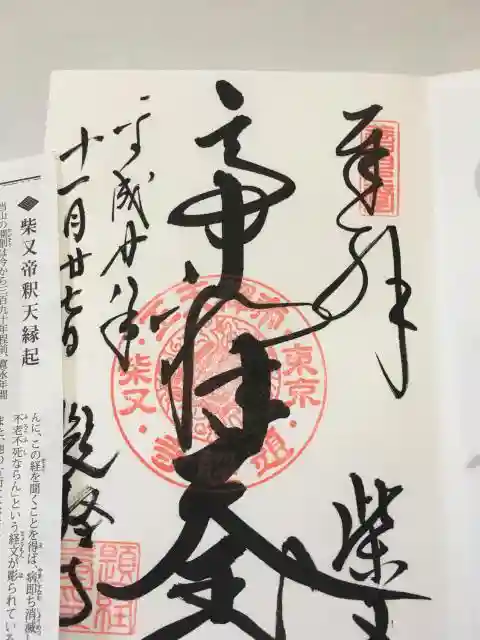 奉拝
柴又
帝釈天
平成廿八年
十一月廿七日
題経寺
東京
柴又
◆柴又帝釈天縁起
当山の開創は今から三百九十年程前、寛永年間
んに、この経を聞くことを得ば、病即ち消滅
不老不死ならん」という経文が彫られている